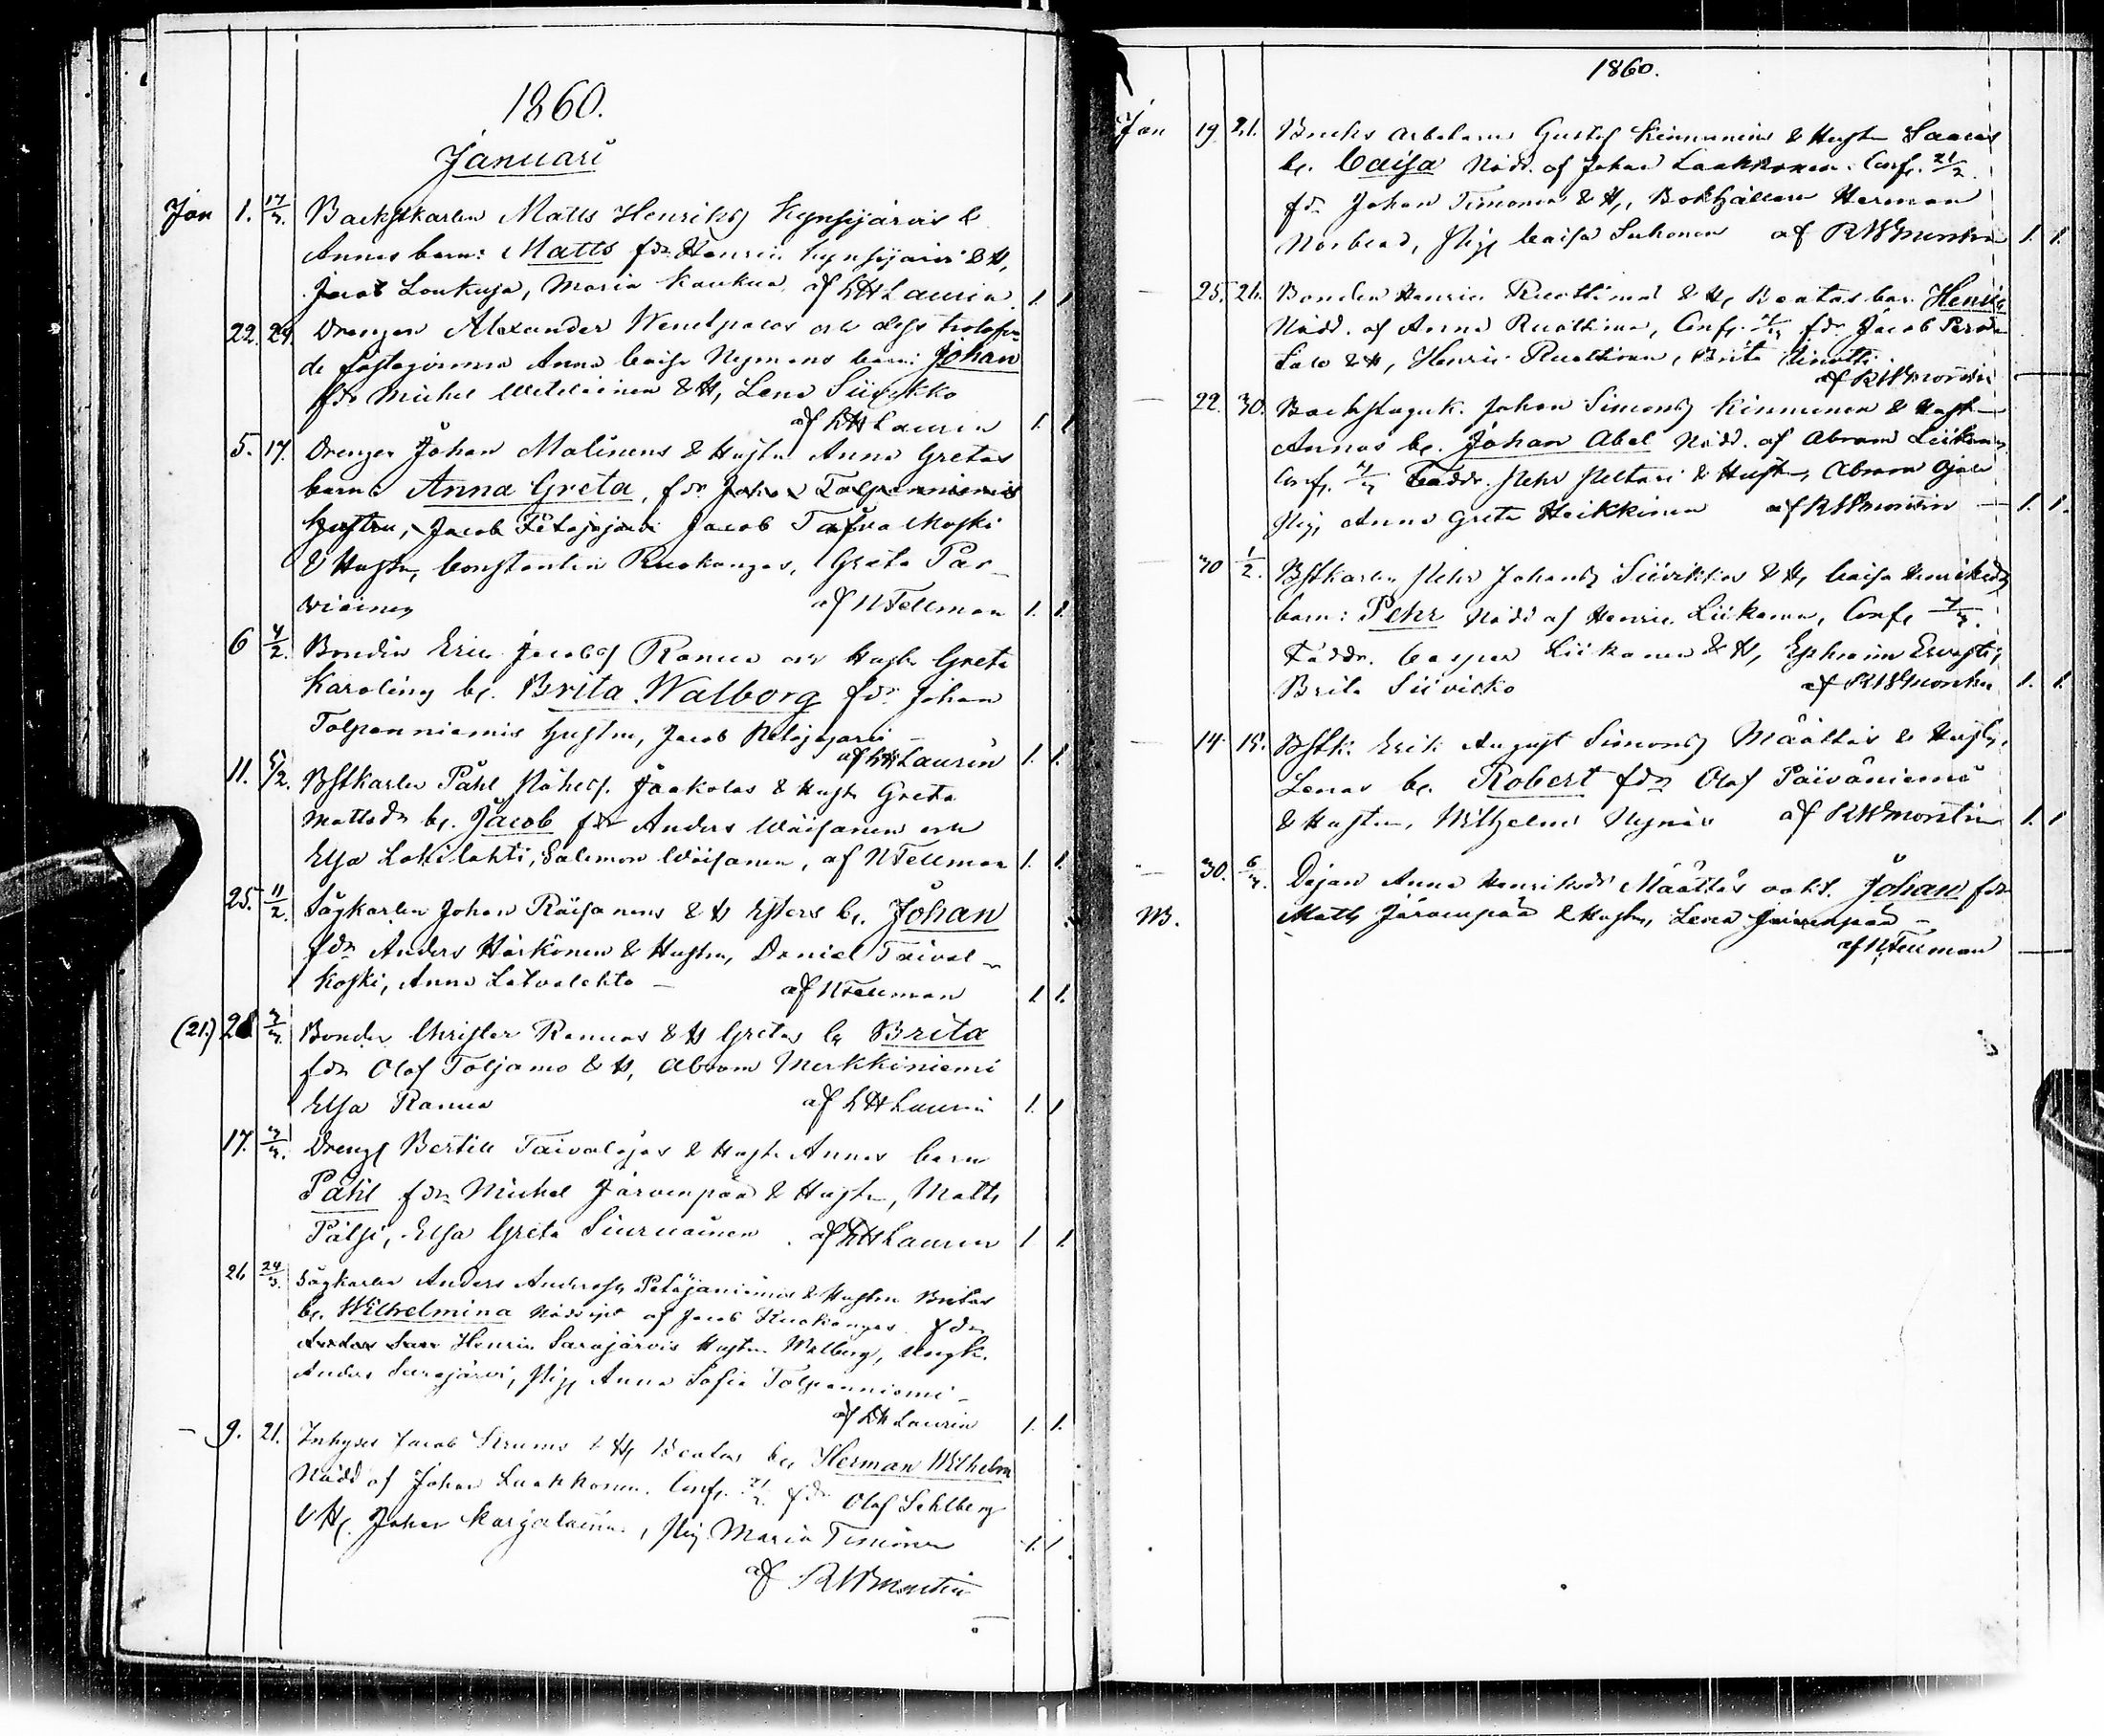 1860.
Januari
Jan 1. 17/3. Backstkarlen Matts Henriks Kynsijärvis &
Annas barn: Matts fdr Henric Kynsijärvi & H,
Jacob Loukusa, Maria Kaukua af LHLaurin 1. 1
22. 29 Drengen Alexander och dess
de Anna Caisa Nymans barn: Johan
fdr Michel & H, Lena Siivikko
af LHLaurin 1. 1
5. 17. Drengen Johan Malinens & Hustru Anna Gretas
barn Anna Greta, fdr Johan Tolpanniemis
hustru, Jacob Jacob Taivalkoski
& Hustru, Constantin Ruokangas, Greta Par-
viainen af NFellman 1. 1.
6 4/2. Bonden Eric Jacobss Ranua och Hustr Greta
Karolinas b. Brita Walborg fdr Johan
Tolpanniemis hustru, Jacob Petäjäjärvi
af LHLaurin 1. 1.
11. 5/2. Bstkarlen Påhl Påhlss. Jaakolas & Hustr Greta
Mattsdr b. Jacob fdr Anders Wäisänen och
Elsa Lohilahti, Salomon Wäisänen, af NFellman 1. 1.
25. 11/2. Sågkarlen Johan Räisänens & H Esters b. Johan
fdr Anders Härkönen & Hustru, Daniel Taival-
koski, Anna Latvalehto — af NFellman 1. 1.
(21.) 28 3/3 Bonden Christer Ranuas & H Gretas b Brita
fdr Olof Toljamo & H, Abram Merkkiniemi
Elsa Ranua af LHLaurin 1. 1
17. 3/3. Dreng Bertill Taivalojas & Hustr Annas barn
Påhl fdr Michel Järvenpää & Hustru, Matts
Pätsi, Elsa Greta Siuruainen. af LHLaurin 1 1.
26 24/3. Sågkarlen Anders Anderss Petäjäniemis & Hustru Britas
b. Wilhelmina Nöddöpt af Jacob Ruokangas fdr
Henric Sarajärvis Hustru Walborg, Ungk.
Anders Sarajärvi, Pig Anna Sofia Tolpanniemi –
af LHLaurin 1. 1.
– 9. 21. Inhyses Jacob & H Beatas b. Herman Wilhelm
Nödd af Johan Laakkonen. Conf. 21/2 fdr Olof Sehlberg
& H. Johan Karjalainen, Pig Maria Timonen 1. 1.
af RWMontin
1860.
Jan 19 21. Bruks arbetaren Gustaf Kinnunens & Hustr Saaras
b. Caisa Nödd. af Johan Laakkonen. Conf. 21/2.
fdr Johan Timonen & H, Bokhållare Herman
Norblad, Pig Caisa Suhonen af RWMontin 1. 1.
— 25. 26. Bonden Henric Ruottinens & H Beatas bar. Henric
Nödd. af Anna Ruottinen, Conf. fdr Jacob
& H, Henric Ruottinen, Brita
af RWMontin —
— 22. 30. Johan Simonss Kinnunen & Hustr
Annas b. Johan Abel Nödd. af Abram Leikas
Conf. Faddr. Pehr Peltari & Hustr, Abram Ojala
Pig, Anna Greta Heikkinen af RWMontin — 1. 1.
— 30 1/2. Bstkarlen Pehr Johanss Siivikkos & H, Caisa Henriksdr
barn: Pehr Nödd af Henric Liikanen, Conf.
Faddr. Casper Liikanen & H, Ephraim Ervasti,
Brita Siivikko af RWMontin 1. 1.
— 14. 15. Bstk. Erik August Simonss Määttäs & Hustr,
Lenas b. Robert fdr Olof Päiväniemi
& Hustru, Wilhelms af RWMontin 1. 1
— 30. 6/3. Pigan Anna Henriksdr Määttäs oäkt. Johan fdr
NB. Matts Järvenpää & Hustru, Lena Järvenpää –
af NFellman —